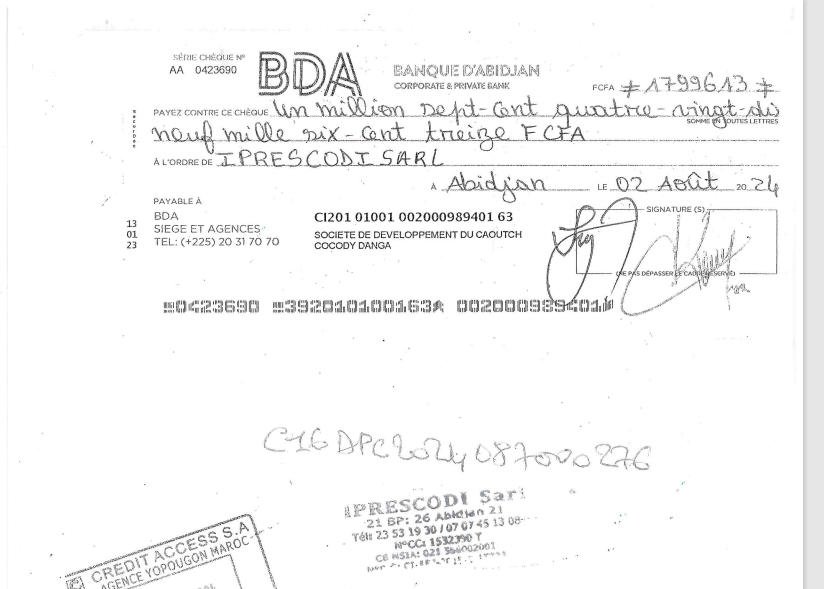 SÉRIE CHÈQUE N°
AA 0423690
BDA
BANQUE D'ABIDJAN
CORPORATE & PRIVATE BANK
FCFA ≠1799613≠
PAYEZ CONTRE CE CHÈQUE Un million sept-cent quatre-vingt-dix
SOMME EN TOUTES LETTRES
neuf mille six-cent treize FCFA
À L'ORDRE DE IPRESCODI SARL
À Abidjan LE 02 Août 2024
PAYABLE À
BDA
SIEGE ET AGENCES
TEL: (+225) 20 31 70 70
13
01
23
CI201 01001 002000989401 63
SOCIETE DE DEVELOPPEMENT DU CAOUTCH
COCODY DANGA
SIGNATURE (S)
(NE PAS DÉPASSER LE CADRE RÉSERVÉ)
0423690 392010100163 002000989401
C16 DPC2024087000276
IPRESCODI Sarl
21 BP: 26 Abidjan 21
Tél: 23 53 19 30 / 07 07 45 13 08
N°CC: 1532390 T
CB NSIA: 021 566002001
CREDIT ACCESS S.A
AGENCE YOPOUGON MAROC